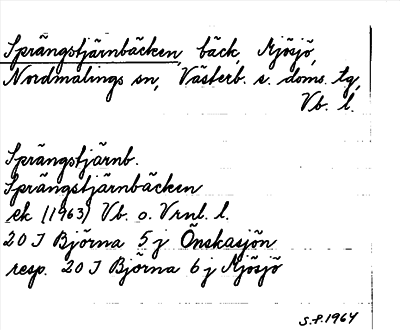 Sprängstjärnbäcken, bäck, Mjösjö,
Nordmalings sn, Västerb. s. doms. tg,
Vb. l.
Sprängstjärnb.
Sprängstjärnbäcken
ek (1963) Vb. o. Vrnl. l.
20 I Björna 5 j Önskasjön
resp. 20 I Björna 6 j Mjösjö
S.P. 1964